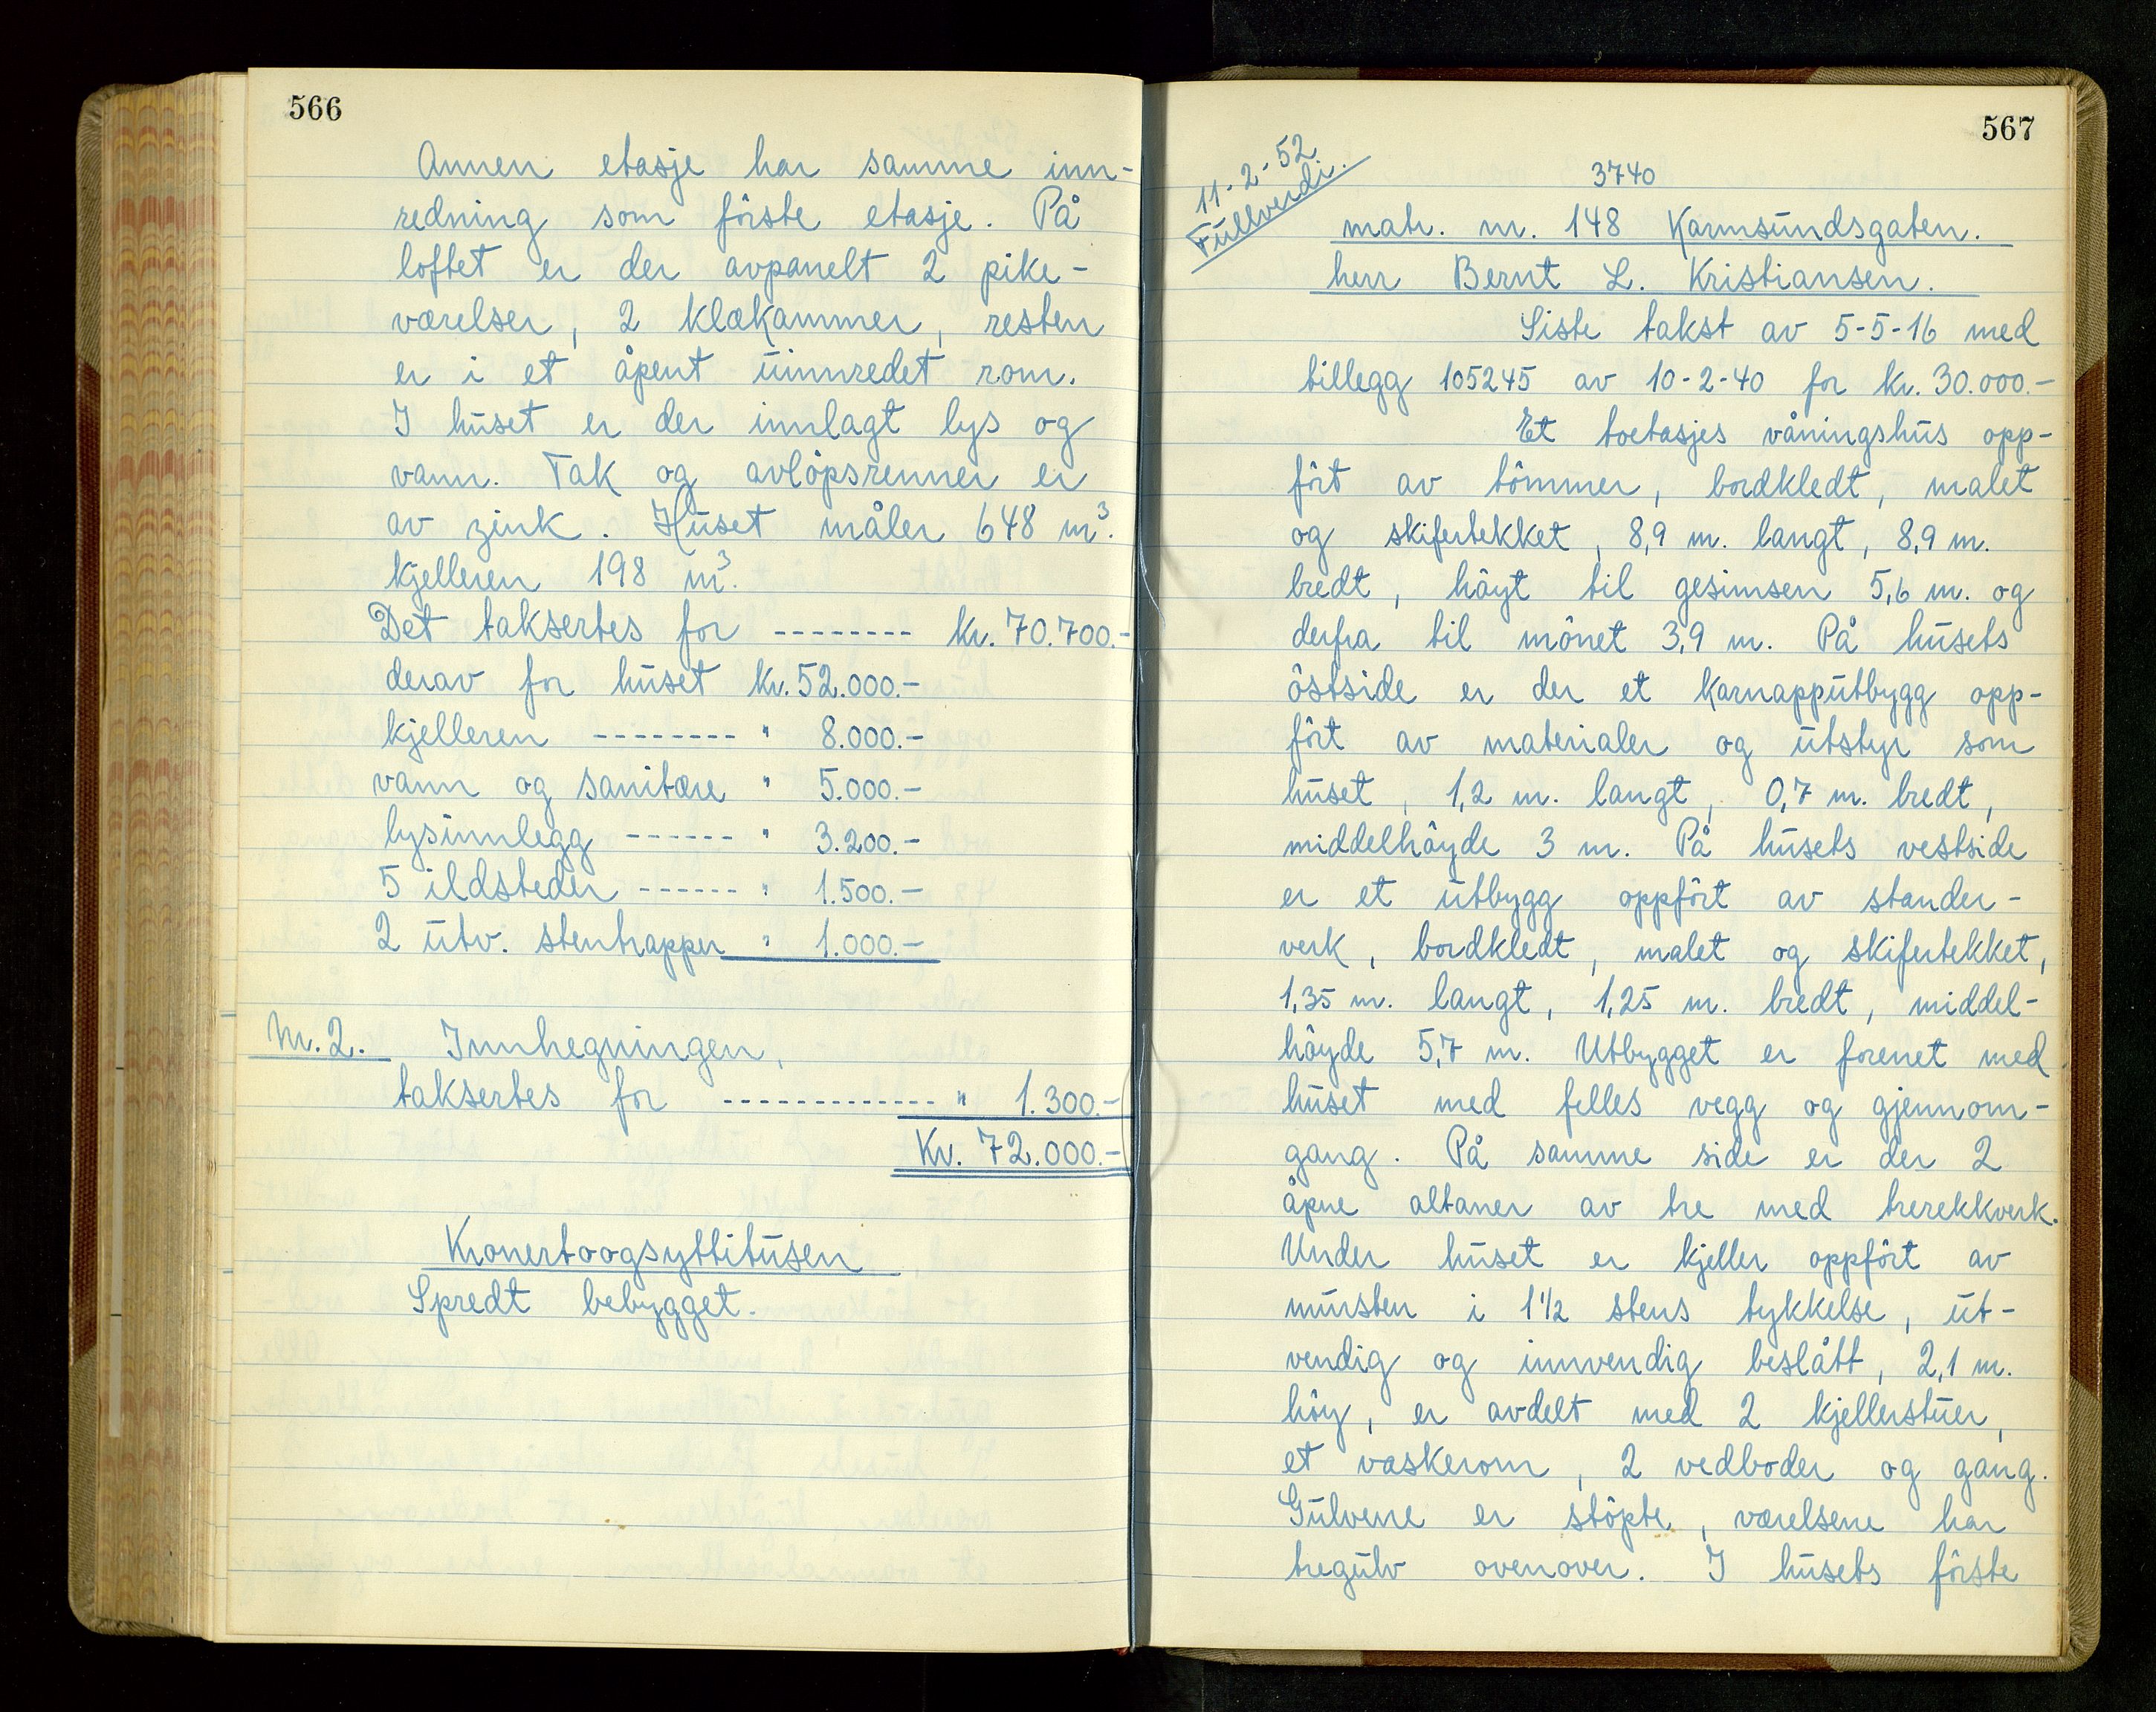 566
Annen etasje har samme inn-
redning som förste etasje. På
loftet er der avpanelt 2 pike-
værelser, 2 klækammer, resten
er i et åpent uinnredet rom.
I huset er der innlagt lys og
vann. Tak og avlöpsrenner er
av zink. Huset måler 648 m³.
kjelleren 198 m³.
Det taksertes for -------- kr. 70.700.-
derav for huset kr. 52.000.-
kjelleren -------- " 8.000.-
vann og sanitære " 5.000.-
lysinnlegg ------ " 3.200.-
5 ildsteder ------ " 1.500.-
2 utv. stentrapper " 1.000.-
Nr. 2. Innhegningen,
taksertes for ------------- " 1.300.-
Kr. 72.000.-
Kronertoogsyttitusen
Spredt bebygget.
567
11-2-52
Fullverdi.
3740
matr. nr. 148 Karmsundsgaten.
herr Bernt L. Kristiansen.
Siste takst av 5-5-16 med
tillegg 105245 av 10-2-40 for kr. 30.000.-
Et toetasjes våningshus opp-
fört av tömmer, bordkledt, malet
og skifertekket, 8,9 m. langt, 8,9 m.
bredt, höyt til gesimsen 5,6 m. og
derfra til mönet 3,9 m. På husets
östside er der et karnapputbygg opp-
fört av materialer og utstyr som
huset, 1,2 m. langt, 0,7 m. bredt,
middelhöyde 3 m. På husets vestside
er et utbygg oppfört av stander-
verk, bordkledt, malet og skifertekket,
1,35 m. langt, 1,25 m. bredt, middel-
höyde 5,7 m. Utbygget er forenet med
huset med felles vegg og gjennom-
gang. På samme side er der 2
åpne altaner av tre med trerekkverk.
Under huset er kjeller oppfört av
mursten i 1 1/2 stens tykkelse, ut-
vendig og innvendig beslått, 2,1 m.
höy, er avdelt med 2 kjellerstuer,
et vaskerom, 2 vedboder og gang.
Gulvene er stöpte, værelsene har
tregulv ovenover. I husets förste